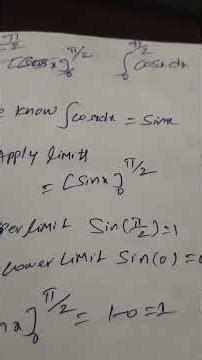 π/2
[cosx]₀^π/2 ∫₀^π/2 cosx dx
know ∫cosxdx = sinx
Apply limit
= [sinx]₀^π/2
per limit Sin(π/2)=1
lower limit Sin(0) =
x]₀^π/2 = 1-0=1